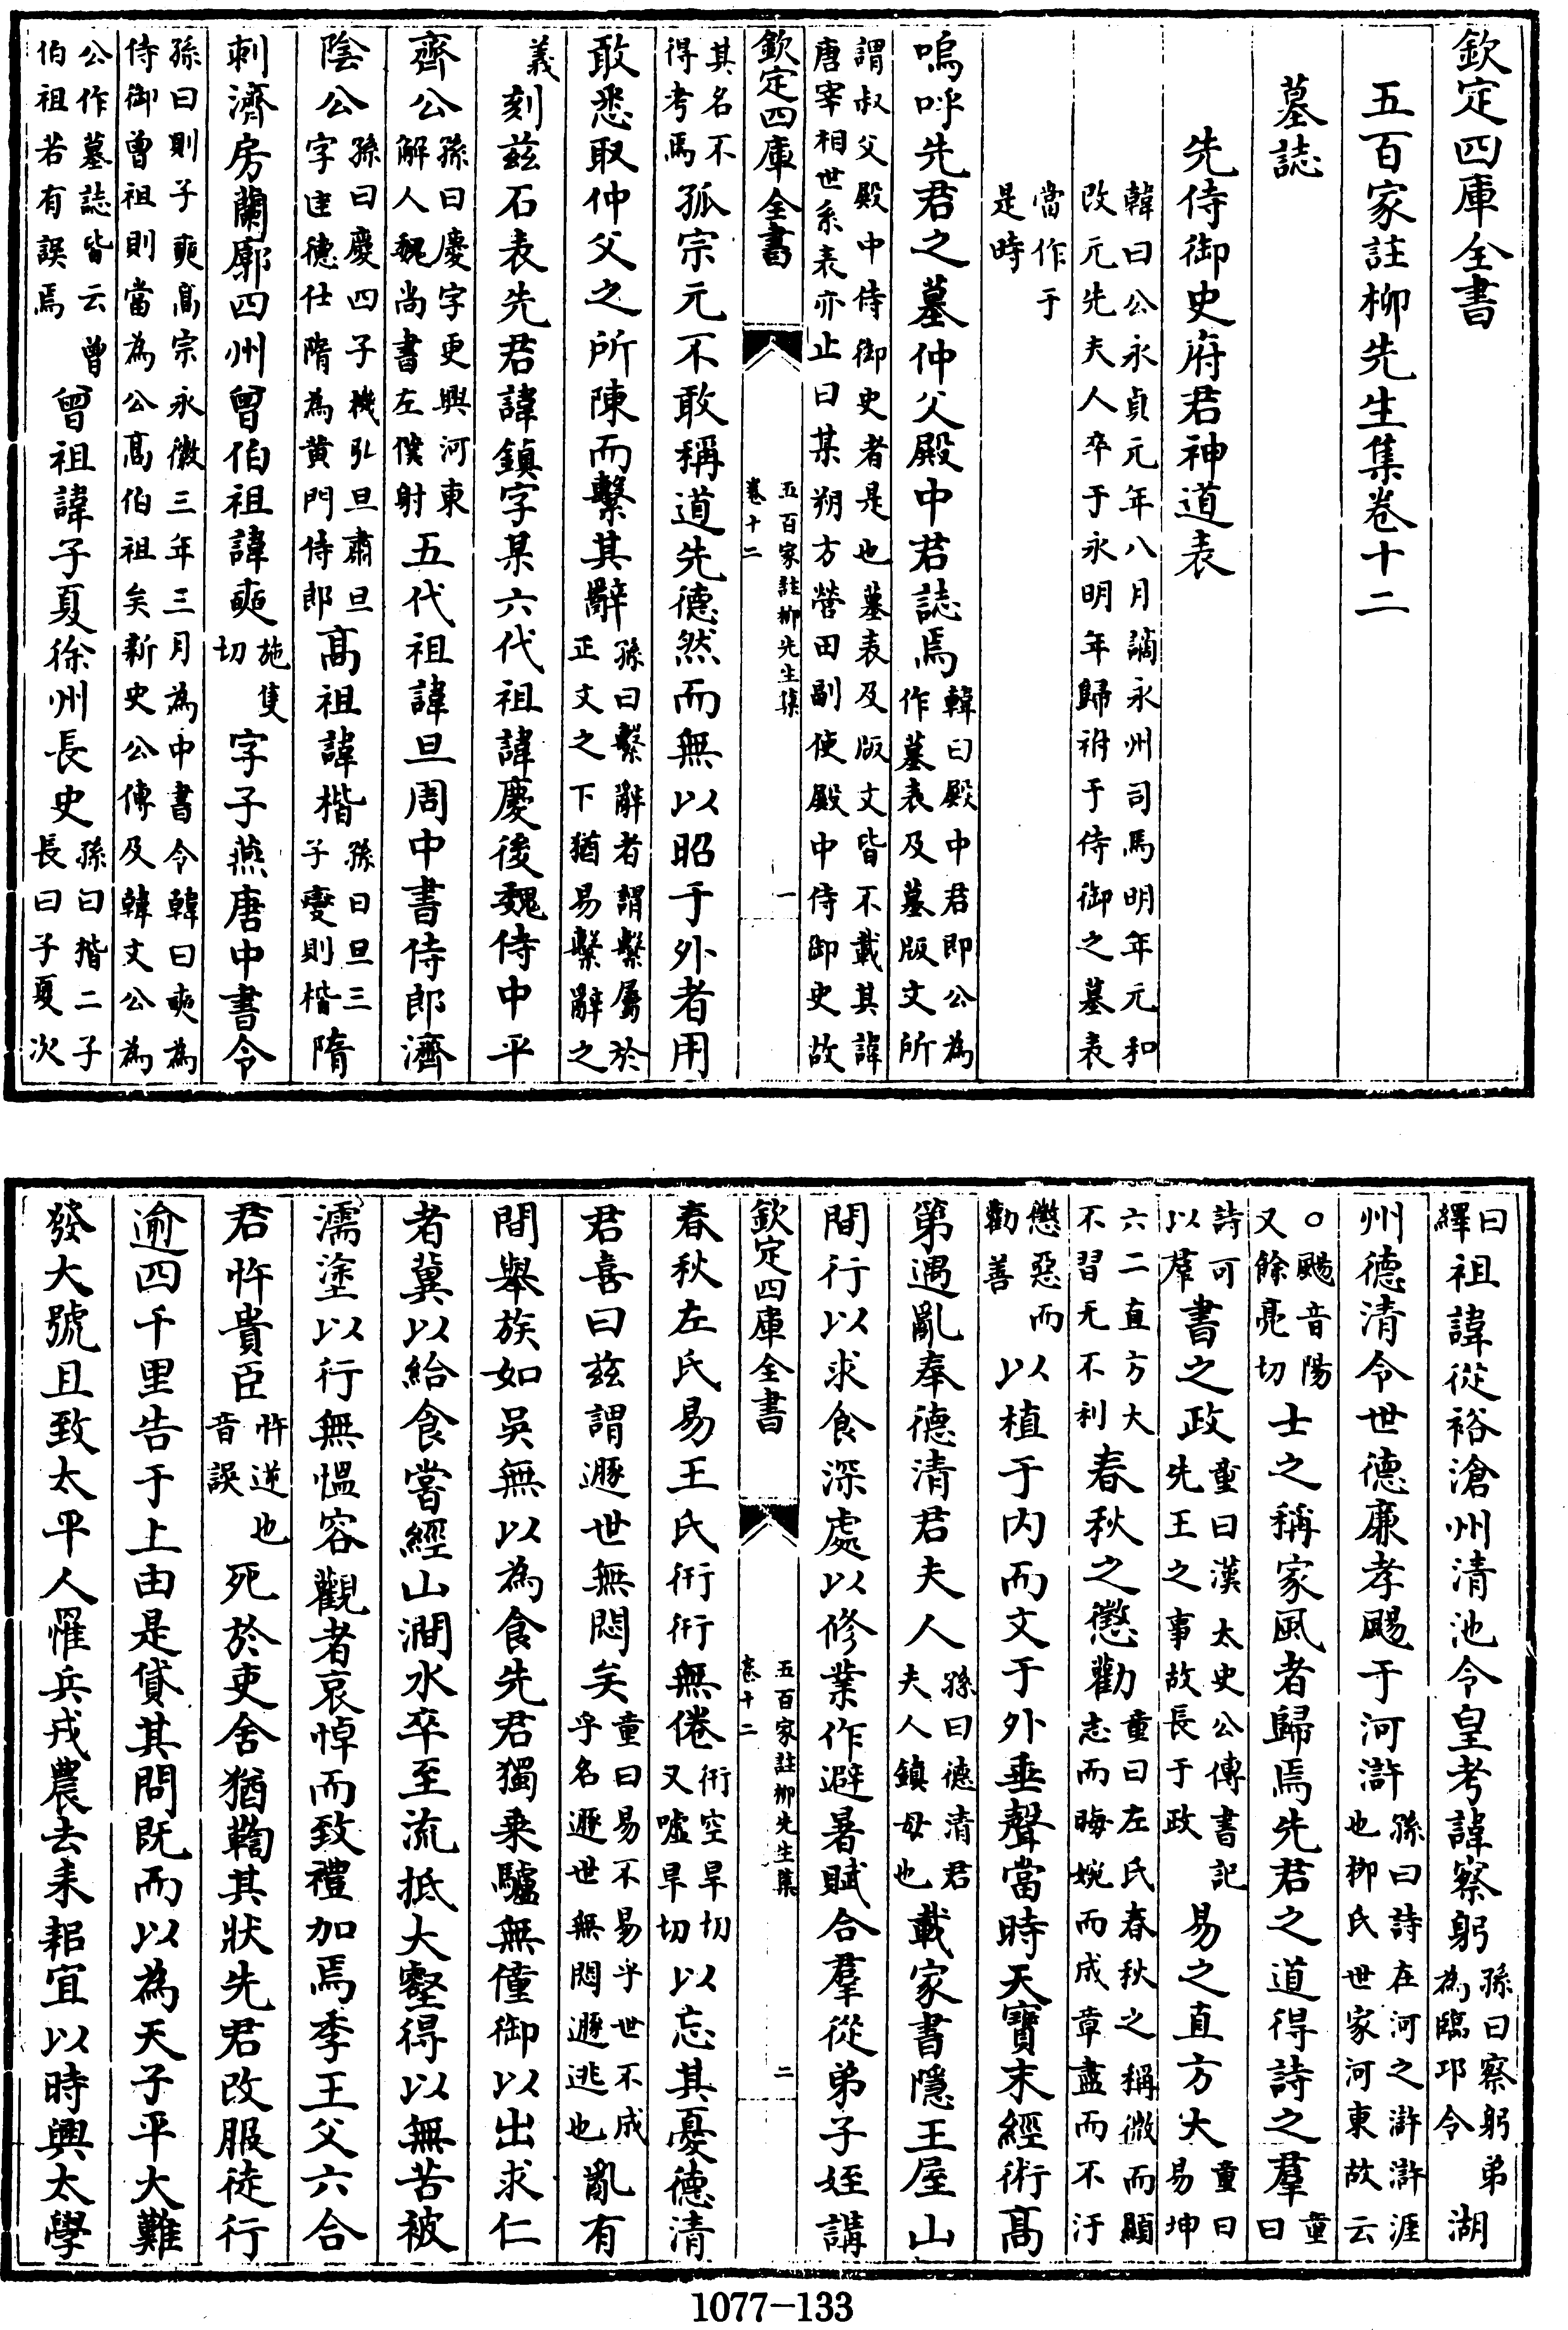 欽定四庫全書
五百家註柳先生集卷十二
墓誌
先侍御史府君神道表
韓曰公永貞元年八月謫永州司馬明年元和
改元先夫人卒于永明年歸祔于侍御之墓表
當作于
是時
嗚呼先君之墓仲父殿中君誌焉韓曰殿中君即公為
作墓表及墓版文所
謂叔父殿中侍御史者是也墓表及版文皆不載其諱
唐宰相世系表亦止曰某朔方營田副使殿中侍御史故
欽定四庫全書 五百家註柳先生集 卷十二 一
其名不
得考焉孤宗元不敢稱道先德然而無以昭于外者用
敢悉取仲父之所陳而繫其辭孫曰繫辭者謂繫屬於
正文之下猶易繫辭之
義刻茲石表先君諱鎮字某六代祖諱慶後魏侍中平
齊公孫曰慶字更興河東
解人魏尚書左僕射五代祖諱旦周中書侍郎濟
陰公孫曰慶四子機弘旦肅旦
字匡德仕隋為黄門侍郎髙祖諱楷孫曰旦三
子夔則楷隋
刺濟房蘭廓四州曾伯祖諱奭施隻
切字子燕唐中書令
孫曰則子奭髙宗永徽三年三月為中書令韓曰奭為
侍御曾祖則當為公髙伯祖矣新史公傳及韓文公為
公作墓誌皆云曾
伯祖若有誤焉曾祖諱子夏徐州長史孫曰楷二子
長曰子夏次
曰
繹祖諱從裕滄州清池令皇考諱察躬孫曰察躬弟
為臨邛令湖
州德清令世德廉孝颺于河滸孫曰詩在河之滸滸涯
也柳氏世家河東故云
○颺音陽
又餘亮切士之稱家風者歸焉先君之道得詩之羣童
曰
詩可
以羣書之政童曰漢太史公傳書記
先王之事故長于政易之直方大童曰
易坤
六二直方大
不習无不利春秋之懲勸童曰左氏春秋之稱微而顯
志而晦婉而成章盡而不汙
懲惡而
勸善以植于内而文于外垂聲當時天寶末經術髙
第遇亂奉德清君夫人孫曰德清君
夫人鎮母也載家書隱王屋山
間行以求食深處以修業作避暑賦合羣從弟子姪講
欽定四庫全書 五百家註柳先生集 卷十二 二
春秋左氏易王氏衎衎無倦衎空旱切
又墟旱切以忘其憂德清
君喜曰茲謂遯世無悶矣童曰易不易乎世不成
乎名遯世無悶遯逃也亂有
間舉族如吳無以為食先君獨乗驢無僮御以出求仁
者冀以給食嘗經山澗水卒至流抵大壑得以無苦被
濡塗以行無愠容觀者哀悼而致禮加焉季王父六合
君忤貴臣忤逆也
音誤死於吏舍猶鞫其狀先君改服徒行
逾四千里告于上由是貸其問既而以為天子平大難
發大號且致太平人罹兵戎農去耒耜宜以時興太學
1077-133